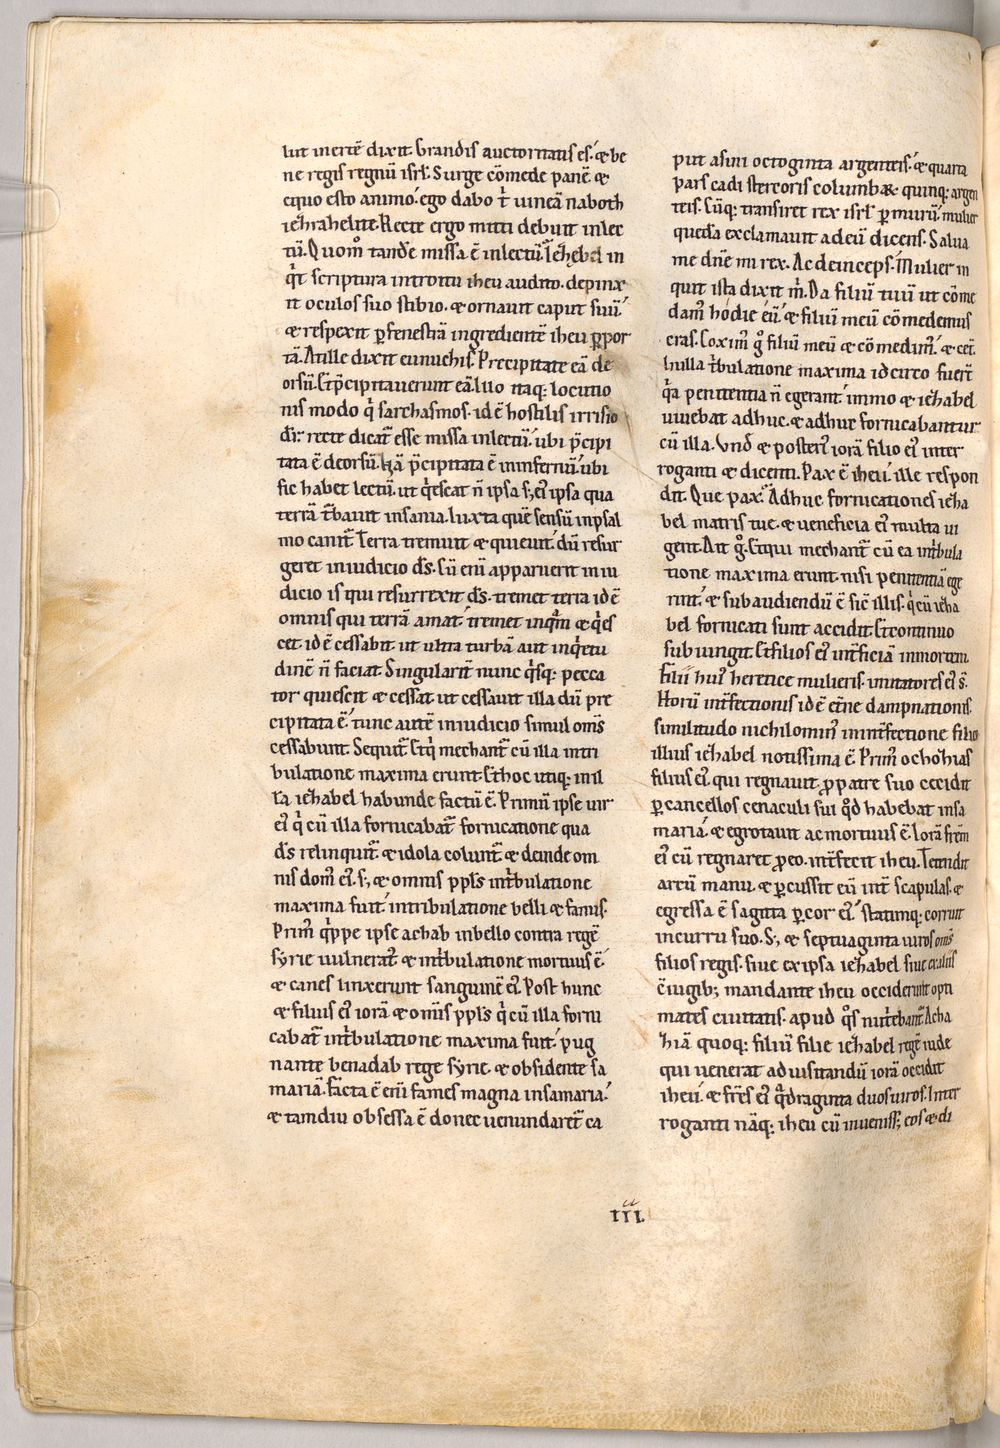 lut inertē dixit. Grandis auctoritatis es. & be
ne regis regnū isrl. Surge cōmede panē &
equo esto animo. ego dabo t̄ uineā naboth
iezrahelite. Recte ergo mitti debuit inlec
tū. Quom̊ tandē missa ē inlectū. Iezabel in
q̄t scriptura introitu iheu audito. depinx
it oculos suo stibio. & ornauit caput suū.
& respexit p̱ fenestrā ingredientē iheu p̱ por
tā. At ille dixit eunuchis. Precipitate eā de
orsū. Et p̄cipitauerunt eā. Illo itaq; locutio
nis modo q̇ sarchasmos. id ē hostilis irrisio
dr̄. recte dicat̄ esse missa inlectū. ubi p̄cipi
tata ē deorsū. Nā p̄cipitata ē ininfernū. ubi
sic habet lectū. ut q̇escat n̄ ipsa s; ei᾽ ipsa qua
terrā t̄bauit insania. Iuxta quē sensū inpsal
mo canit̄. Terra tremuit & quieuit. dū resur
geret iniudicio d̄s. Cū enī apparuerit iniu
dicio is qui resurrexit d̄s. tremet terra id ē
omnis qui terrā amat. tremet inq̄m & q̇es
cet. id ē cessabit ut ultra turbā aut inq̇etu
dinē n̄ faciat. Singularit̄ nunc q̇sq; pecca
tor quiescit & cessat. ut cessauit illa dū pre
cipitata ē. tunc autē iniudicio simul om̄s
cessabunt. Sequit̄. Et q̇ mechant̄ cū illa intri
bulatione maxima erunt. Et hoc utiq; inil
la iezabel habunde factū ē. Primū ipse uir
ei᾽ q̇ cū illa fornicabat̄ fornicatione qua
d̄s relinquit̄. & idola colunt̄. & deinde om
nis dom᾽ ei᾽. s; & omnis ppl̄s int̄bulatione
maxima fuit. intribulatione belli & famis.
Prim᾽ q̇ppe ipse achab inbello contra regē
syrie uulnerat᾽ & int̄bulatione mortuus ē.
& canes linxerunt sanguinē ei᾽. Post hunc
& filius ei᾽ iorā & om̄is ppl̄s q̇ cū illa forni
cabat̄ int̄bulatione maxima fuit. pug
nante benadab rege syrie. & obsidente sa
mariā. Facta ē enī fames magna insamaria.
& tamdiu obsessa ē donec uenundaret̄ ca
put asini octoginta argenteis. & quarta
pars cadi stercoris columbar̄ quinq; argen
teis. Cūq; transiret rex isrl. p̱ murū. mulier
quedā exclamauit adeū dicens. Salua
me dn̄e mi rex. Ac deinceps. Mulier in
quit ista dixit m̄. Da filiū tuū ut cōme
dam᾽ hodie eū. & filiū meū cōmedemus
cras. Coxim᾽ g̊ filiū meū & cōmedim᾽. & cet̄.
In illa t̄bulatione maxima idcirco fuer̄t
q̄a penitentia n̄ egerant. immo & iezabel
uiuebat adhuc. & adhuc fornicabantur
cū illa. Vnd̄ & posteri᾽ iorā filio ei᾽ inter
roganti & dicenti. Pax ē iheu. ille respon
dit. Que pax. Adhuc fornicationes ieza
bel matris tue. & ueneficia ei᾽ multa ui
gent. Ait g̊. Et qui mechant̄ cū ea int̄bula
tione maxima erunt. nisi penitentiā ege
rint. & subaudiendū ē sic̄ illis. q̇ cū ieza
bel fornicati sunt accidit. Et continuo
subiungit. Et filios ei᾽ int̄ficiā inmortem.
Filii hui᾽ heretice mulieris. imitatores ei᾽ s̄.
Horū int̄fectionis id ē et̄ne dampnationis.
similitudo nichilomin᾽ inint̄fectione filio
illius iezabel notissima ē. Prim᾽ ochozias
filius ei᾽. qui regnauit p̱ patre suo cecidit
p̱ cancellos cenaculi sui q̊d habebat insa
mariā. & egrotauit ac mortuus ē. Iorā fr̄em
ei᾽ cū regnaret p̱ eo. int̄fecit iheu. Tetendit
arcū manu. & p̱cussit eū int̄ scapulas. &
egressa ē sagitta p̱ cor ei᾽. statimq; corruit
incurru suo. S; & septuaginta uiros om̄s
filios regis. siue ex ipsa iezabel siue ex aliis
c̄iugib; mandante iheu occiderunt opti
mates ciuitatis. apud q̊s nut̄ebant̄. Acha
ziā quoq; filiū filie iezabel regē iude
qui uenerat aduisitandū iorā occidit
iheu. & fr̄es ei᾽ q̄draginta duos uiros. Inter
roganti nāq; iheu cū inueniss; eos & di
III.